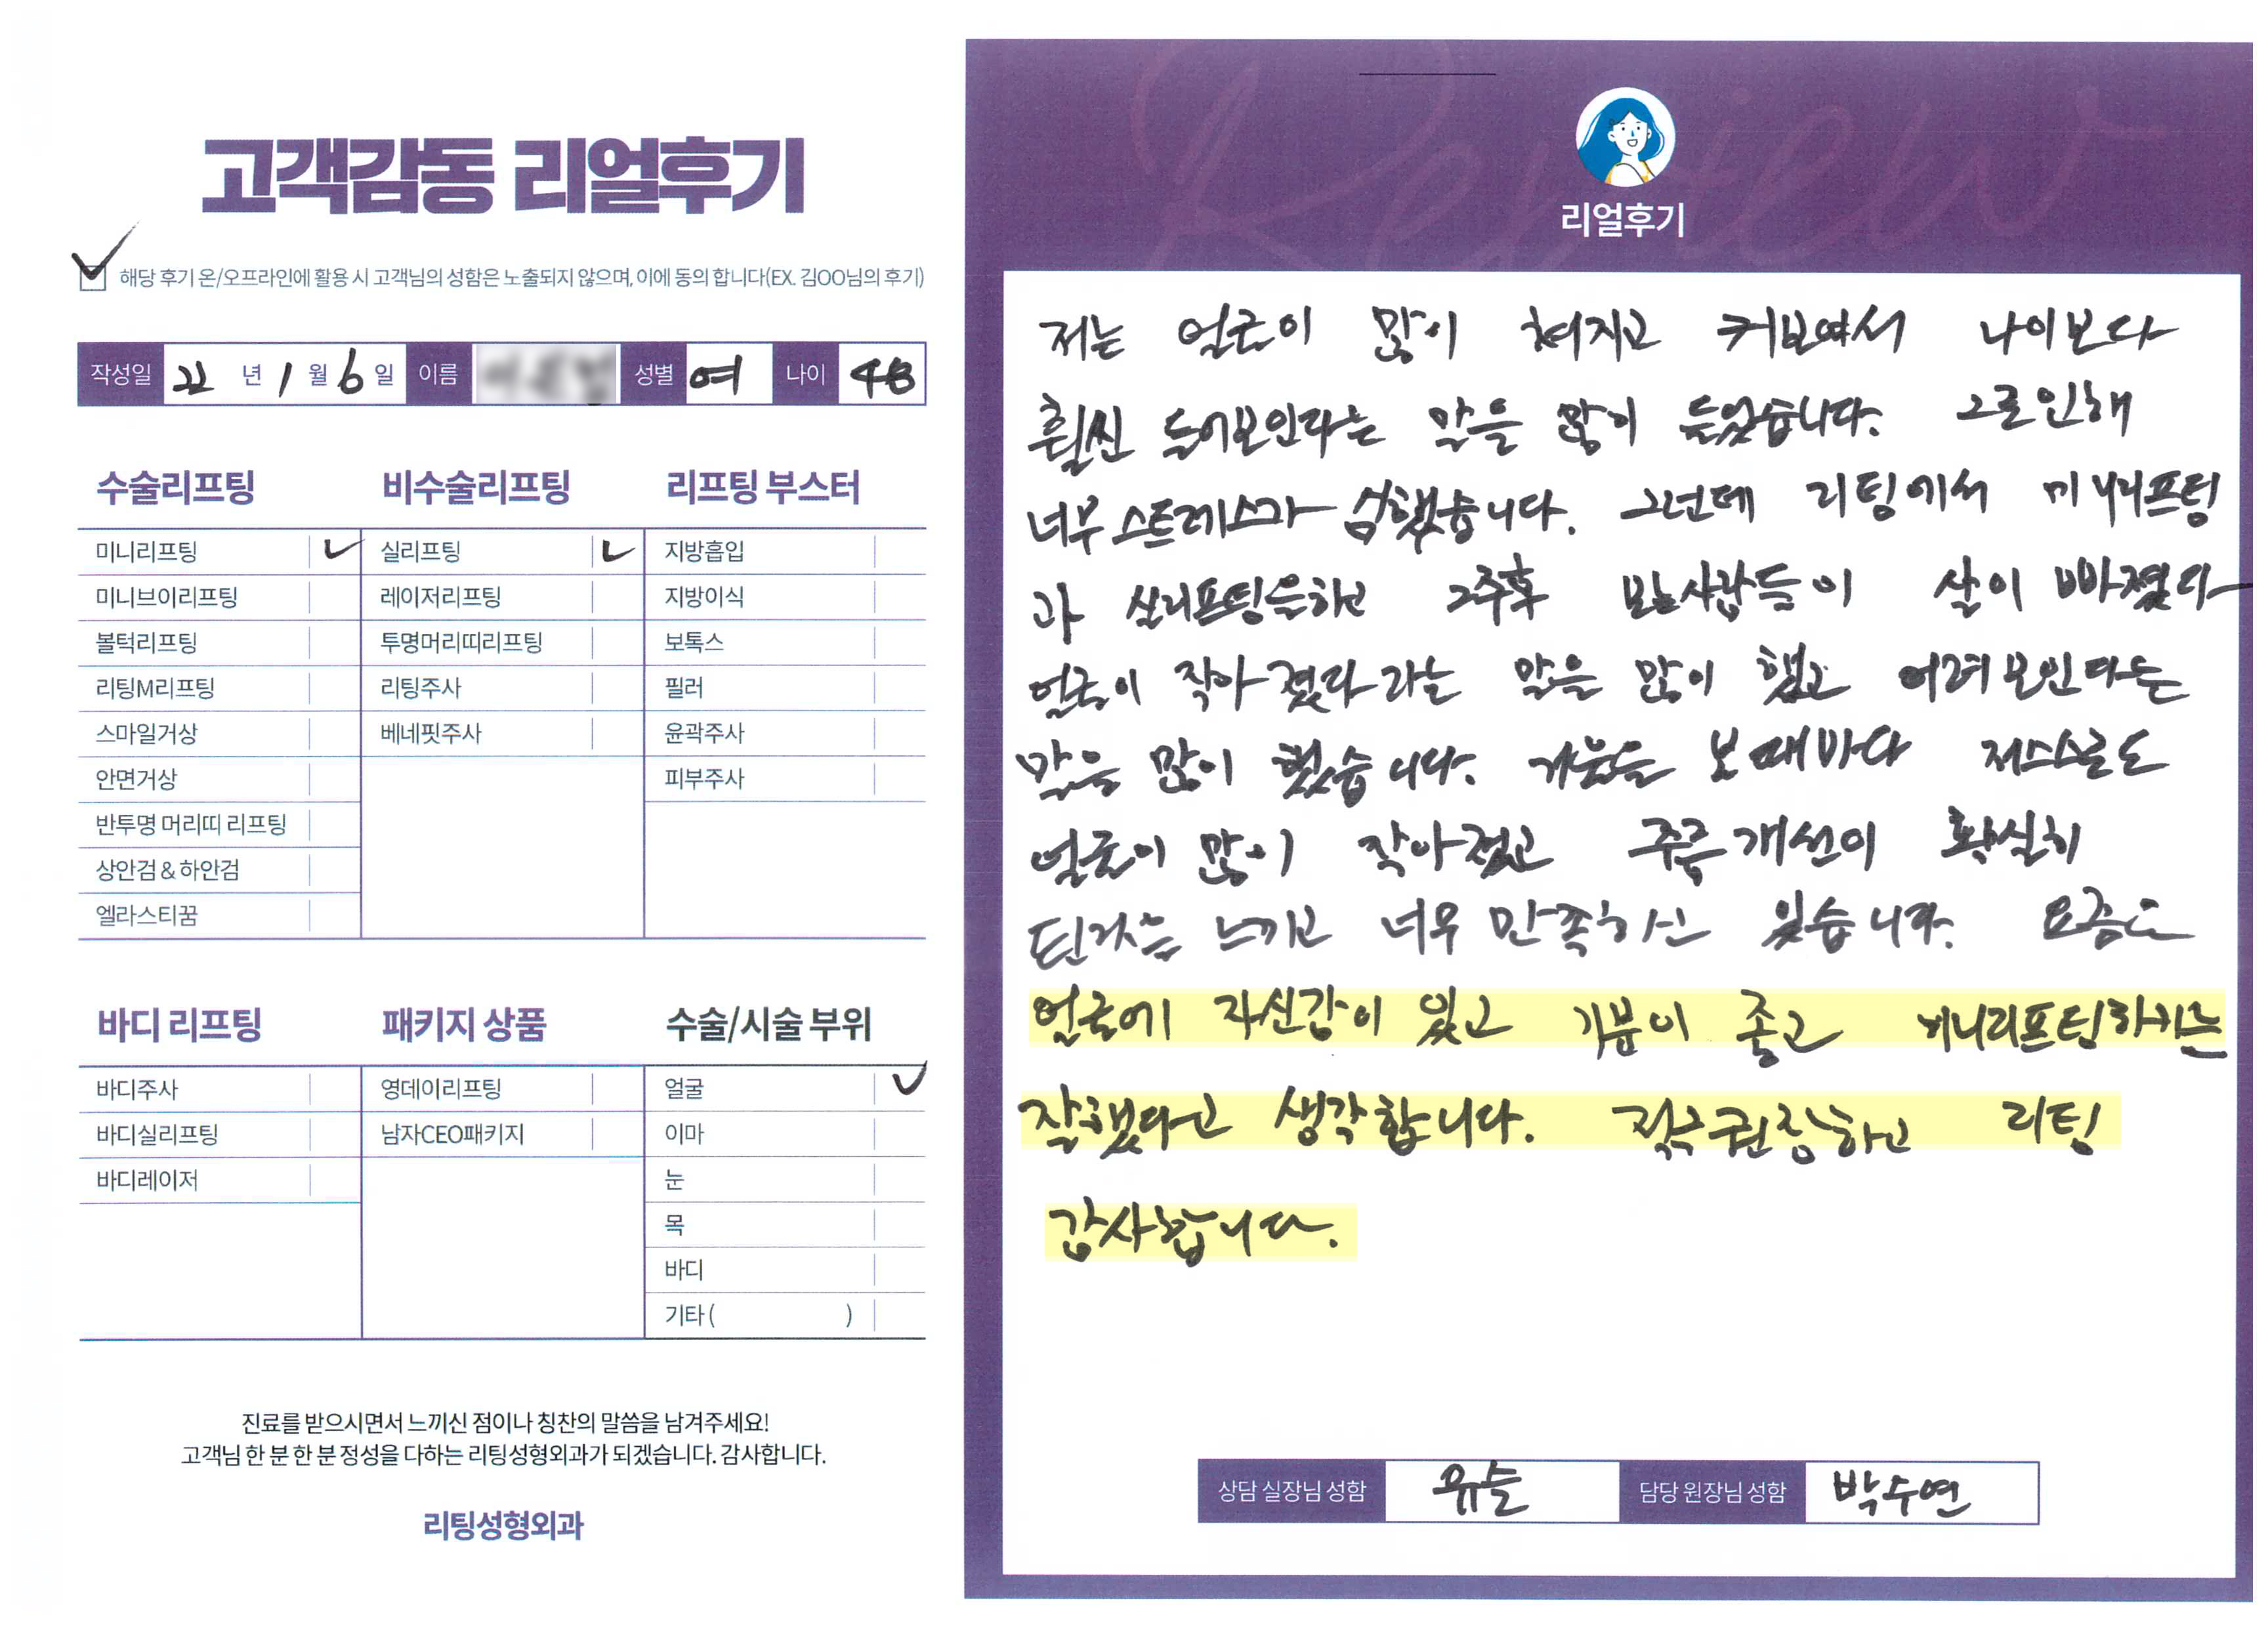 고객감동 리얼후기
해당 후기 온/오프라인에 활용 시 고객님의 성함은 노출되지 않으며, 이에 동의 합니다(EX. 김OO님의 후기)
작성일 22 년 1 월 6 일 이름 성별 여 나이 48
수술리프팅
미니리프팅
미니브이리프팅
볼턱리프팅
리팅M리프팅
스마일거상
안면거상
반투명 머리띠 리프팅
상안검 & 하안검
엘라스티꿈
비수술리프팅
실리프팅
레이저리프팅
투명머리띠리프팅
리팅주사
베네핏주사
리프팅 부스터
지방흡입
지방이식
보톡스
필러
윤곽주사
피부주사
바디 리프팅
바디주사
바디실리프팅
바디레이저
패키지 상품
영데이리프팅
남자CEO패키지
수술/시술 부위
얼굴
이마
눈
목
바디
기타 ( )
진료를 받으시면서 느끼신 점이나 칭찬의 말씀을 남겨주세요!
고객님 한 분 한 분 정성을 다하는 리팅성형외과가 되겠습니다. 감사합니다.
리팅성형외과
Review
리얼후기
저는 얼굴이 많이 쳐지고 커보여서 나이보다
훨씬 들어보인다는 말을 많이 들었습니다. 그로인해
너무 스트레스가 심했습니다. 그런데 리팅에서 미니리프팅
과 실리프팅을하고 2주후 보는사람들이 살이 빠졌다
얼굴이 작아 졌다 라는 말을 많이 했고 어려보인다는
말을 많이 했습니다. 거울을 볼때마다 저스스로도
얼굴이 많이 작아졌고 주름개선이 확실히
된거를 느끼고 너무 만족하고 있습니다. 요즘은
얼굴에 자신감이 있고 기분이 좋고 미니리프팅하기는
잘했다고 생각합니다. 적극권장하고 리팅
감사합니다.
상담 실장님 성함 유슬 담당 원장님 성함 박수연